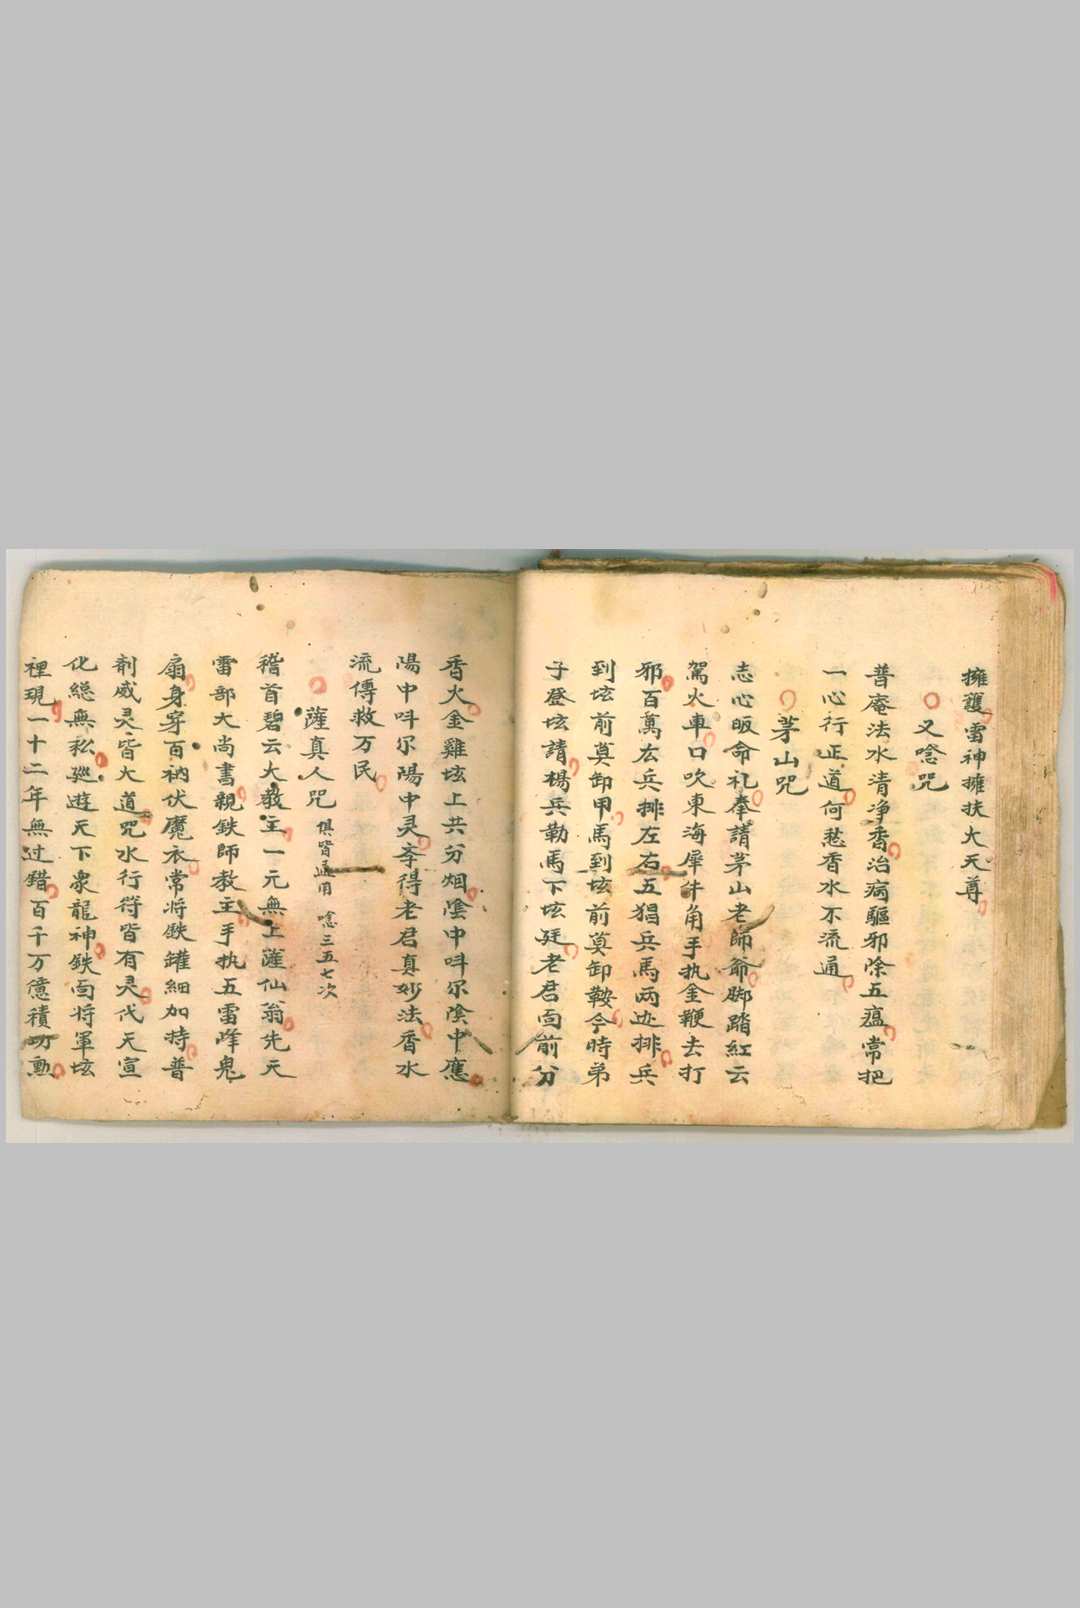 擁護雷神擁扶大天尊
又唸咒
普庵法水清净香治病驅邪除五瘟常把
一心行正道何愁香水不流通
茅山咒
志心皈命礼奉請茅山老師爺腳踏紅云
駕火車口吹東海犀牛角手执金鞭去打
邪百萬雄兵排左右五猖兵馬两边排兵
到坛前莫卸甲馬到坛前莫卸鞍今時弟
子登坛請楊兵勒馬下坛廷老君面前分
香火金雞坛上共分烟陰中呌尔陰中應
陽中呌尔陽中灵奉得老君真妙法香水
流傳救万民
薩真人咒 俱皆通用 唸三五七次
稽首碧云大教主一元無上薩仙翁先天
雷部大尚書親鉄師教主手执五雷降鬼
扇身穿百衲伏魔衣常将鉄罐細加持普
剤威灵皆大道咒水行符皆有灵代天宣
化緦無私廵遊天下衆龍神鉄面将軍坛
裡現一十二年無过錯百千万億積功勳